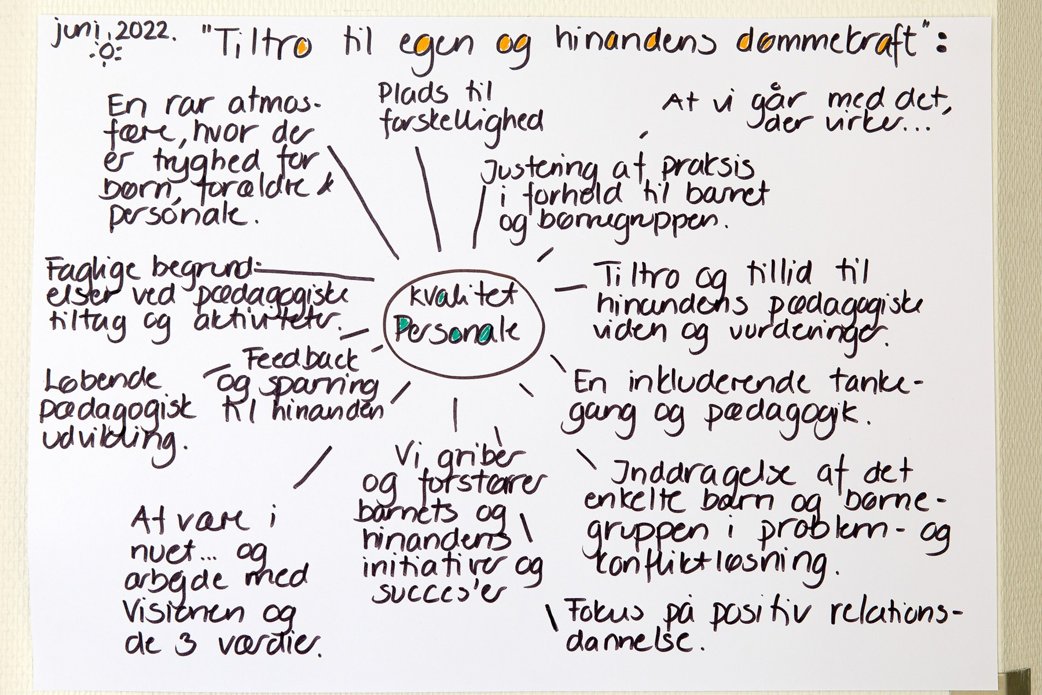 juni, 2022.
"Tiltro til egen og hinandens dømmekraft":
En rar atmos-
fære, hvor der
er tryghed for
børn, forældre &
personale.
Plads til
forskellighed
At vi går med det,
der virker...
Justering af praksis
i forhold til barnet
og børnegruppen.
Faglige begrund-
elser ved pædagogiske
tiltag og aktiviteter.
kvalitet
Personale
Tiltro og tillid til
hinandens pædagogiske
viden og vurderinger.
Feedback
og sparring
til hinanden
Løbende
pædagogisk
udvikling.
En inkluderende tanke-
gang og pædagogik.
Vi griber
og forstærrer
barnets og
hinandens
initiativer og
succes'er
Inddragelse af det
enkelte barn og børne-
gruppen i problem- og
konfliktløsning.
At være i
nuet... og
arbejde med
Visionen og
de 3 værdier.
Fokus på positiv relations-
dannelse.